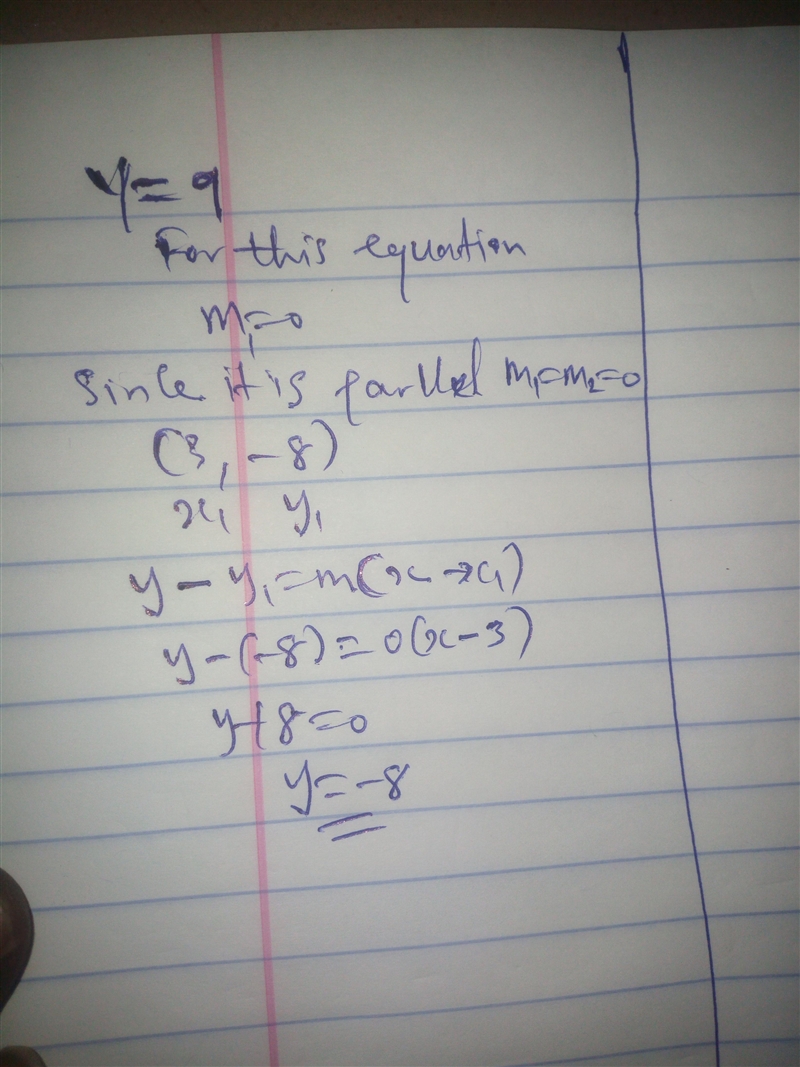 y = 9
For this equation
m₁=0
Since it is parllel m₁=m₂=0
(3, -8)
x₁ y₁
y - y₁ = m(x - x₁)
y - (-8) = 0(x - 3)
y + 8 = 0
y = -8